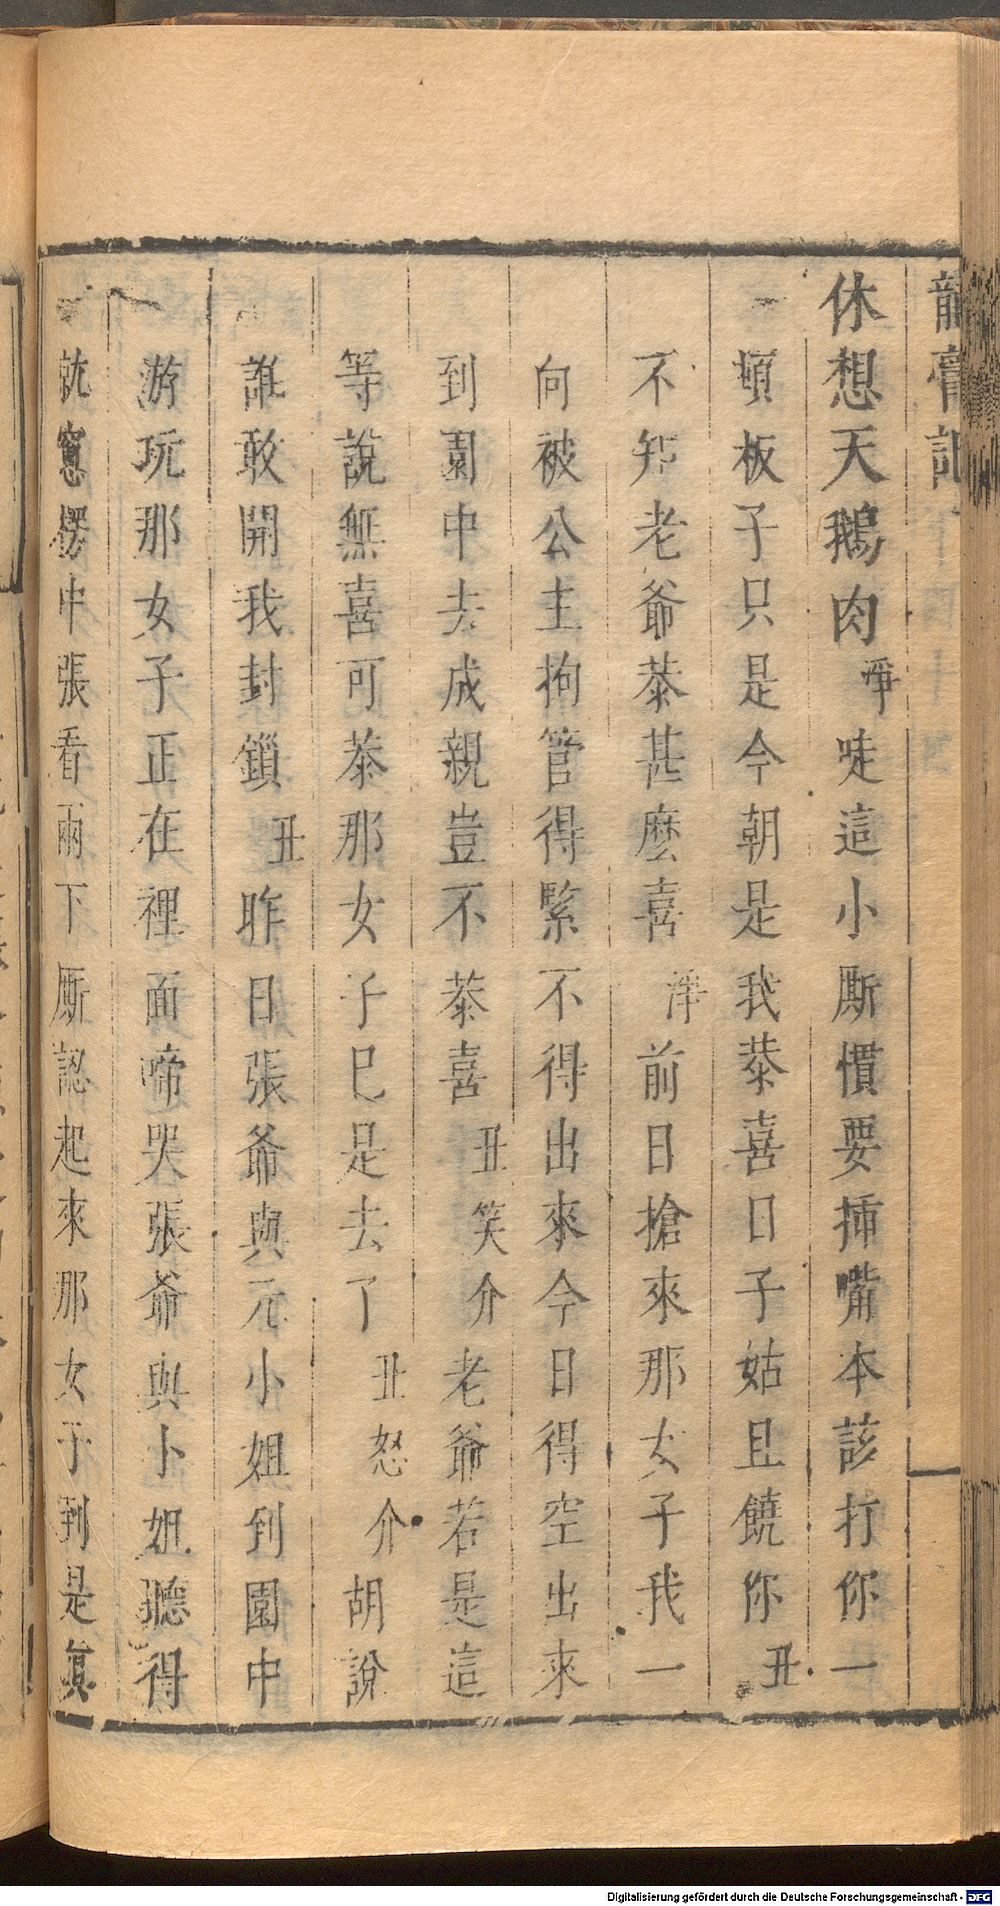 龍膏記
休想天鵝肉淨哇這小厮慣要揷嘴本該打你一
頓板子只是今朝是我恭喜日子姑且饒你丑
不知老爺恭甚麽喜淨前日搶來那女子我一
向被公主拘管得緊不得出來今日得空出來
到園中去成親豈不恭喜丑笑介老爺若是這
等說無喜可恭那女子已是去了丑怒介胡說
誰敢開我封鎖丑昨日張爺與元小姐到園中
游玩那女子正在裡面啼哭張爺與小姐聽得
就窻楞中張看兩下厮認起來那女子到是眞
Digitalisierung gefördert durch die Deutsche Forschungsgemeinschaft - DFG